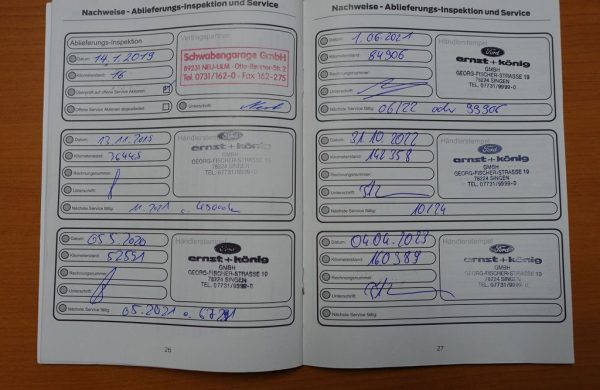 Nachweise - Ablieferungs-Inspektion und Service
Ablieferungs-Inspektion
Datum: 14.1.2019
Kilometerstand: 16
Überprüft auf offene Service Aktionen
Offene Service Aktionen abgearbeitet
Vertragspartner
Schwabengarage GmbH
89231 NEU-ULM · Otto-Renner-Str. 2
Tel. 0731/162-0 · Fax 162-275
Unterschrift:
Datum: 13.11.2019
Kilometerstand:
Rechnungsnummer:
Unterschrift:
Händlerstempel
Ford
ernst + könig
GMBH
GEORG-FISCHER-STRASSE 19
78224 SINGEN
TEL. 07731/9999-0
Nächste Service fällig: 11.2021 o.
Datum: 05.5.2020
Kilometerstand: 52591
Rechnungsnummer:
Unterschrift:
Händlerstempel
Ford
ernst + könig
GMBH
GEORG-FISCHER-STRASSE 19
78224 SINGEN
TEL. 07731/9999-0
Nächste Service fällig: 05.2021 o.
26
Nachweise - Ablieferungs-Inspektion und Service
Datum: 1.06.2021
Kilometerstand: 84906
Rechnungsnummer:
Unterschrift:
Händlerstempel
Ford
ernst + könig
GMBH
GEORG-FISCHER-STRASSE 19
78224 SINGEN
TEL. 07731/9999-0
Nächste Service fällig: 06/22 oder 99906
Datum: 31.10.2022
Kilometerstand: 142358
Rechnungsnummer:
Unterschrift:
Händlerstempel
Ford
ernst + könig
GMBH
GEORG-FISCHER-STRASSE 19
78224 SINGEN
TEL. 07731/9999-0
Nächste Service fällig: 10/24
Datum: 04.04.2023
Kilometerstand: 160389
Rechnungsnummer:
Unterschrift:
Händlerstempel
Ford
ernst + könig
GMBH
GEORG-FISCHER-STRASSE 19
78224 SINGEN
TEL. 07731/9999-0
Nächste Service fällig:
27